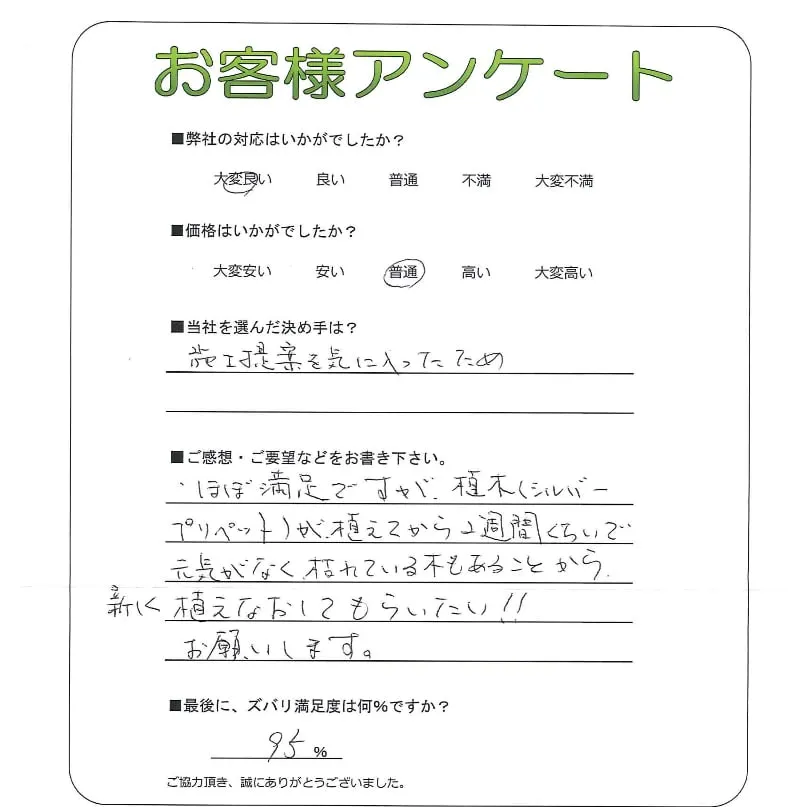 お客様アンケート
■弊社の対応はいかがでしたか？
大変良い 良い 普通 不満 大変不満
■価格はいかがでしたか？
大変安い 安い 普通 高い 大変高い
■当社を選んだ決め手は？
施工提案を気に入ったため
■ご感想・ご要望などをお書き下さい。
・ほぼ満足ですが、植木(シルバー
プリペット)が、植えてから2週間くらいで
元気がなく、枯れている木もあることから、
新しく植えなおしてもらいたい!!
お願いします。
■最後に、ズバリ満足度は何％ですか？
95％
ご協力頂き、誠にありがとうございました。